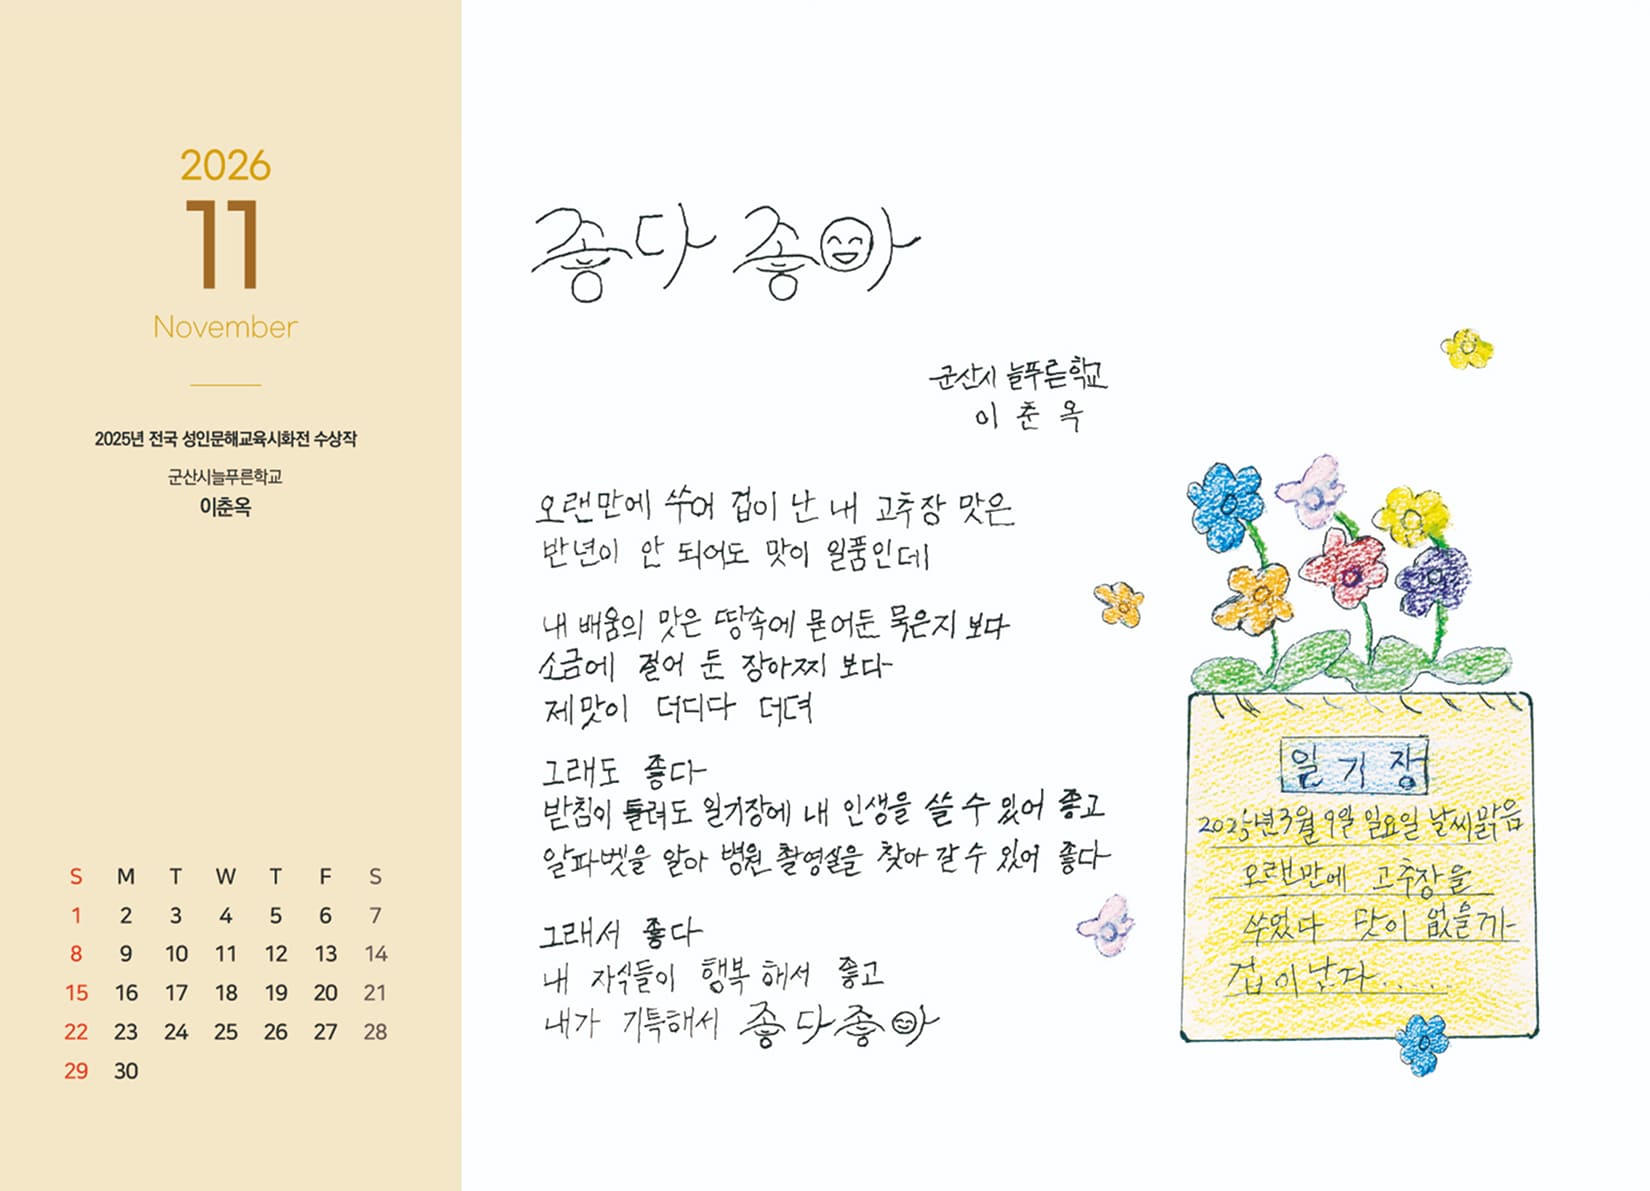 2026
11
November
2025년 전국 성인문해교육시화전 수상작
군산시늘푸른학교
이춘옥
S M T W T F S
1 2 3 4 5 6 7
8 9 10 11 12 13 14
15 16 17 18 19 20 21
22 23 24 25 26 27 28
29 30
좋다 좋아
군산시 늘푸른학교
이춘옥
오랜만에 쑤어 겁이 난 내 고추장 맛은
반년이 안 되어도 맛이 일품인데
내 배움의 맛은 땅속에 묻어둔 묵은지 보다
소금에 절어 둔 장아찌 보다
제맛이 더디다 더뎌
그래도 좋다
받침이 틀려도 일기장에 내 인생을 쓸 수 있어 좋고
알파벳을 알아 병원 촬영실을 찾아 갈 수 있어 좋다
그래서 좋다
내 자식들이 행복 해서 좋고
내가 기특해서 좋다좋아
일기장
2025년3월 9일 일요일 날씨맑음
오랜만에 고추장을
쑤었다 맛이 없을까
겁이난다.....